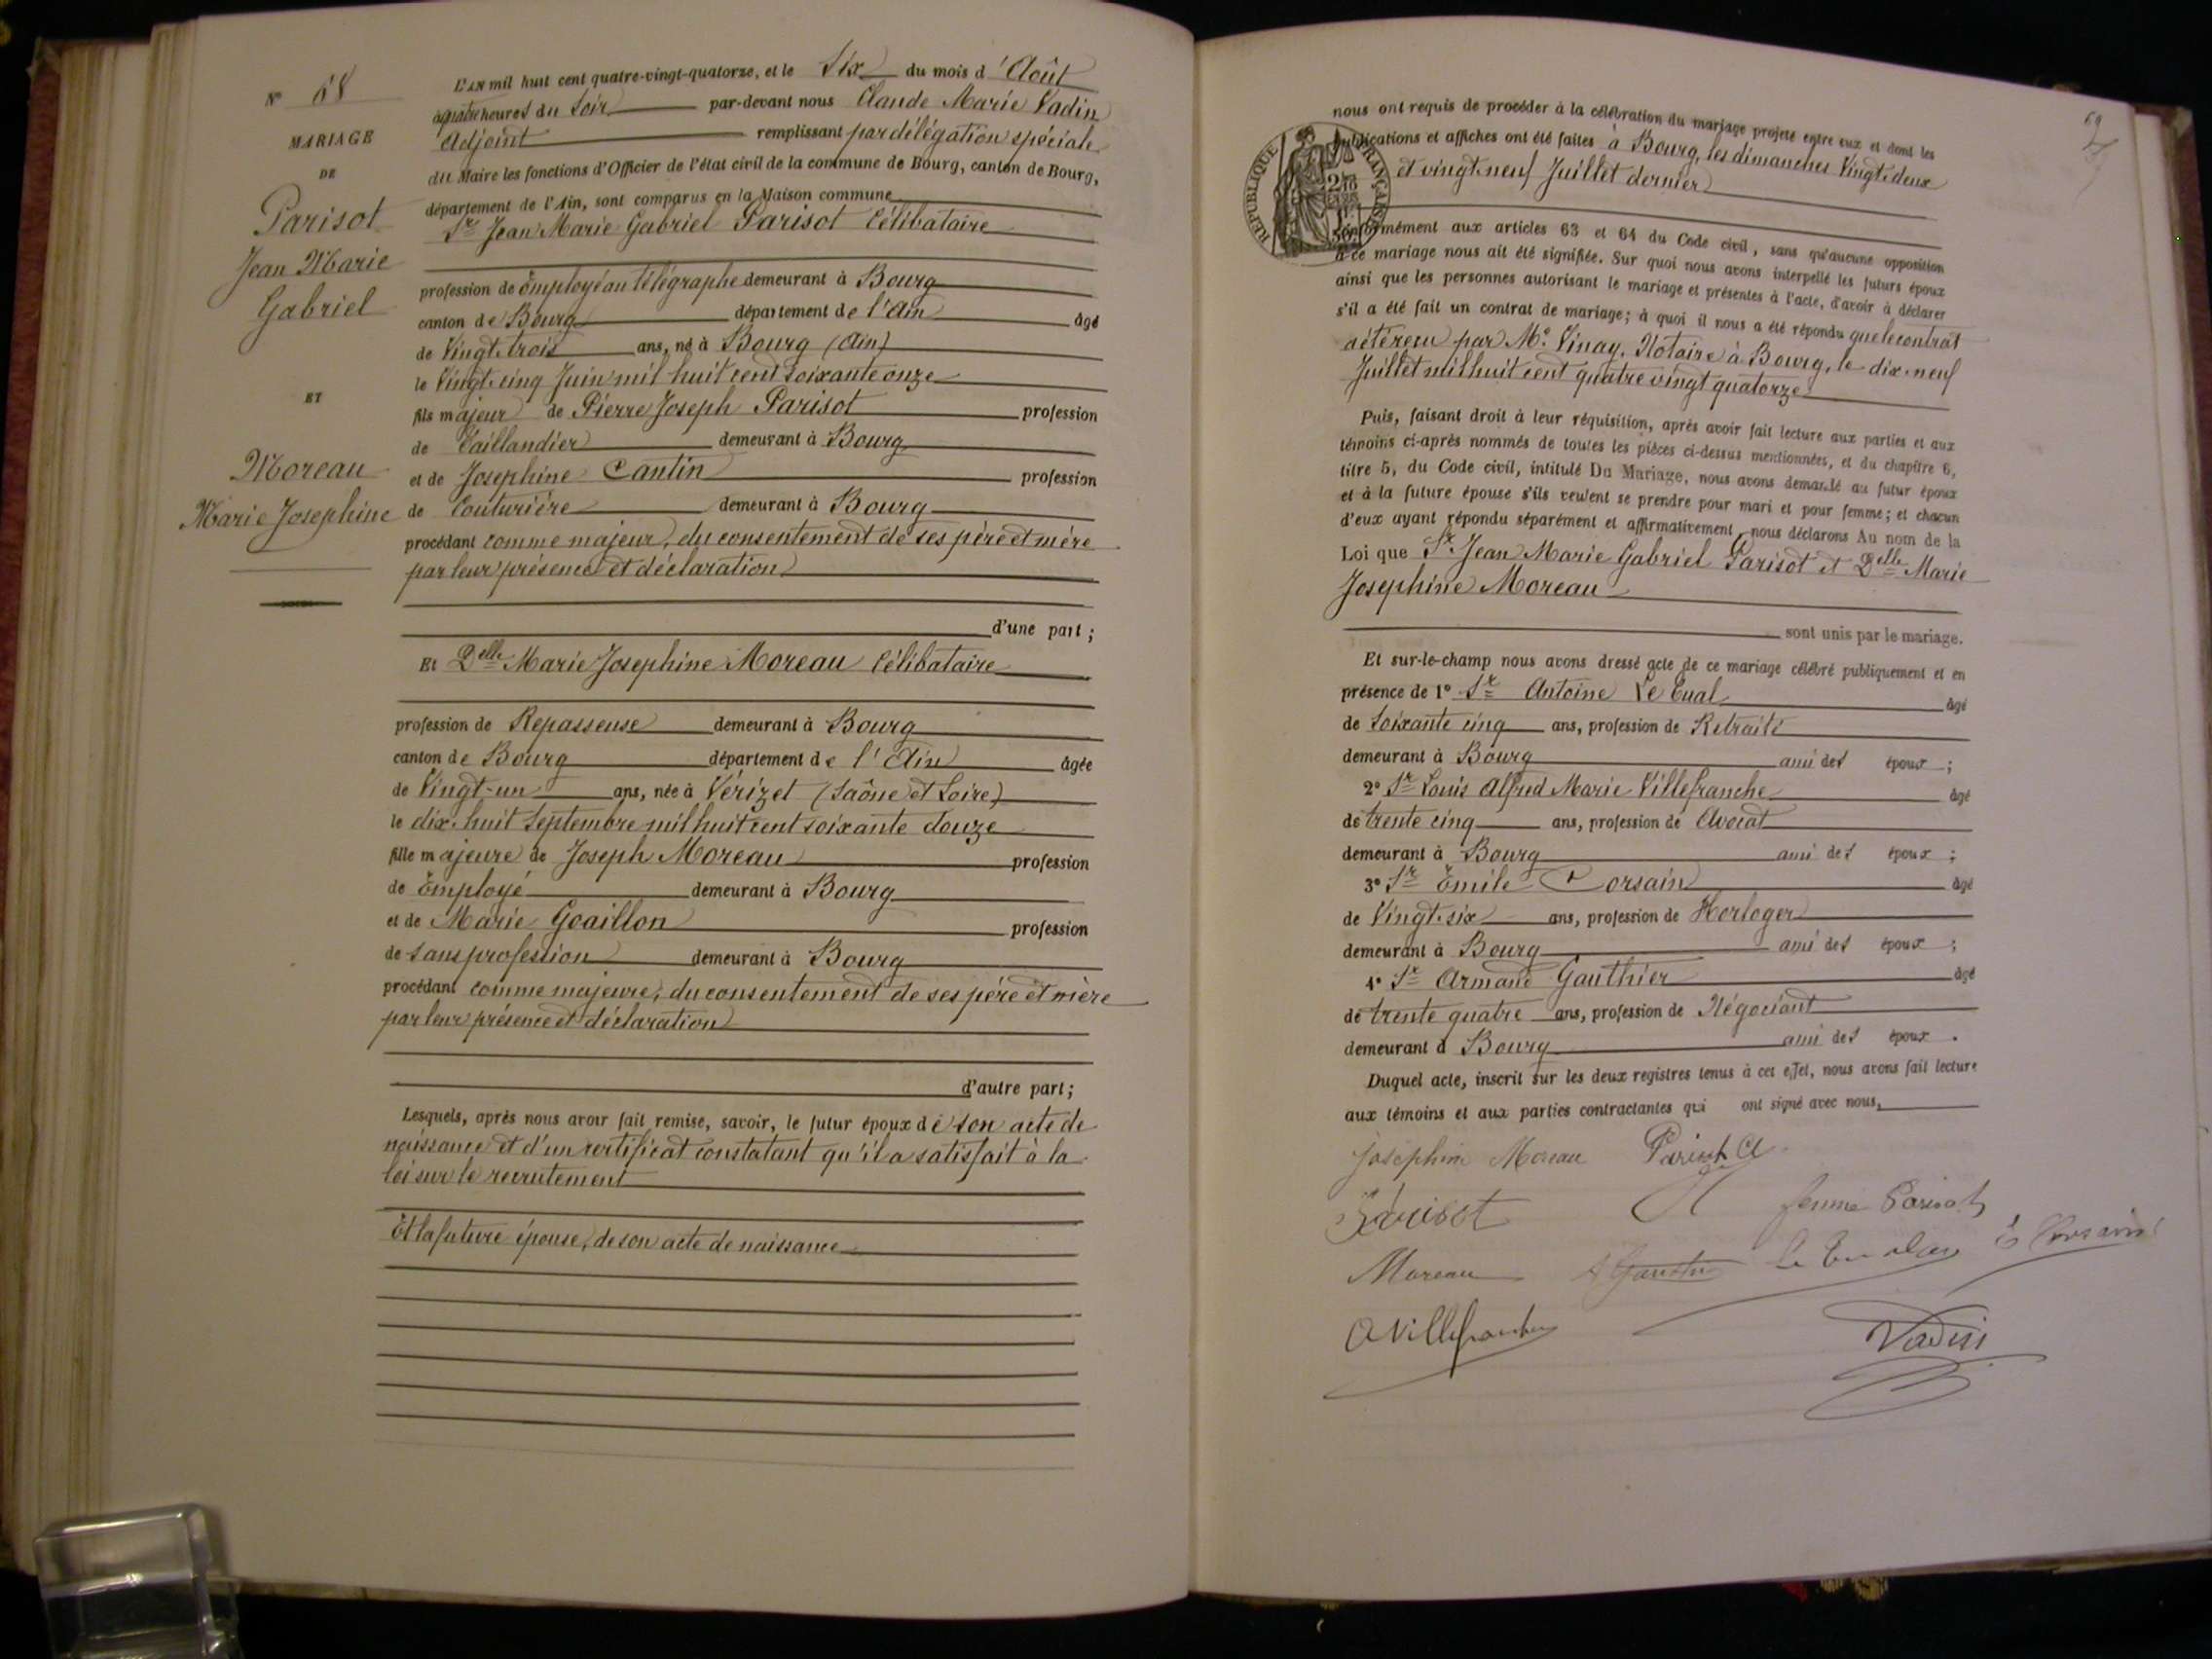 N° 68
MARIAGE
DE
Parisot
Jean Marie
Gabriel
ET
Moreau
Marie Josephine
L'AN mil huit cent quatre-vingt-quatorze, et le Six du mois d'Août
à quatre heures du Soir par-devant nous Claude Marie Vadin
Adjoint remplissant par délégation spéciale
du Maire les fonctions d'Officier de l'état civil de la commune de Bourg, canton de Bourg,
département de l'Ain, sont comparus en la Maison commune
Sr Jean Marie Gabriel Parisot Célibataire
profession de Employé au télégraphe demeurant à Bourg
canton de Bourg département de l'Ain âgé
de Vingt-trois ans, né à Bourg (Ain)
le Vingt-cinq Juin mil huit cent soixante onze
fils majeur de Pierre Joseph Parisot profession
de Taillandier demeurant à Bourg
et de Josephine Cantin profession
de Couturière demeurant à Bourg
procédant comme majeur, du consentement de ses père et mère
par leur présence et déclaration
d'une part;
Et Delle Marie Josephine Moreau Célibataire
profession de Repasseuse demeurant à Bourg
canton de Bourg département de l'Ain âgée
de Vingt-un ans, née à Vérizet (Saône et Loire)
le dix-huit Septembre mil huit cent soixante douze
fille majeure de Joseph Moreau profession
de Employé demeurant à Bourg
et de Marie Goaillon profession
de sans profession demeurant à Bourg
procédant comme majeure, du consentement de ses père et mère
par leur présence et déclaration
d'autre part;
Lesquels, après nous avoir fait remise, savoir, le futur époux de son acte de
naissance et d'un certificat constatant qu'il a satisfait à la
loi sur le recrutement
Et la future épouse, de son acte de naissance
69
nous ont requis de procéder à la célébration du mariage projeté entre eux et dont les
publications et affiches ont été faites à Bourg, les dimanches Vingt-deux
et vingt-neuf Juillet dernier
RÉPUBLIQUE FRANÇAISE
conformément aux articles 63 et 64 du Code civil, sans qu'aucune opposition
à ce mariage nous ait été signifiée. Sur quoi nous avons interpellé les futurs époux
ainsi que les personnes autorisant le mariage et présentes à l'acte, d'avoir à déclarer
s'il a été fait un contrat de mariage; à quoi il nous a été répondu que le contrat
a été reçu par Me Vinay, Notaire à Bourg, le dix-neuf
Juillet mil huit cent quatre vingt quatorze
Puis, faisant droit à leur réquisition, après avoir fait lecture aux parties et aux
témoins ci-après nommés de toutes les pièces ci-dessus mentionnées, et du chapitre 6,
titre 5, du Code civil, intitulé Du Mariage, nous avons demandé au futur époux
et à la future épouse s'ils veulent se prendre pour mari et pour femme; et chacun
d'eux ayant répondu séparément et affirmativement, nous déclarons Au nom de la
Loi que Sr Jean Marie Gabriel Parisot et Delle Marie
Josephine Moreau
sont unis par le mariage.
Et sur-le-champ nous avons dressé acte de ce mariage célébré publiquement et en
présence de 1° Sr Antoine Le Tual âgé
de soixante cinq ans, profession de Retraité
demeurant à Bourg ami des époux;
2° Sr Louis Alfred Marie Villefranche âgé
de trente cinq ans, profession de Avocat
demeurant à Bourg ami des époux;
3° Sr Émile Corsain âgé
de Vingt-six ans, profession de Horloger
demeurant à Bourg ami des époux;
4° Sr Armand Gauthier âgé
de trente quatre ans, profession de Négociant
demeurant à Bourg ami des époux.
Duquel acte, inscrit sur les deux registres tenus à cet effet, nous avons fait lecture
aux témoins et aux parties contractantes qui ont signé avec nous,
Joséphine Moreau Parisot
Parisot femme Parisot
Moreau E Corsain
A Villefranche Vadin